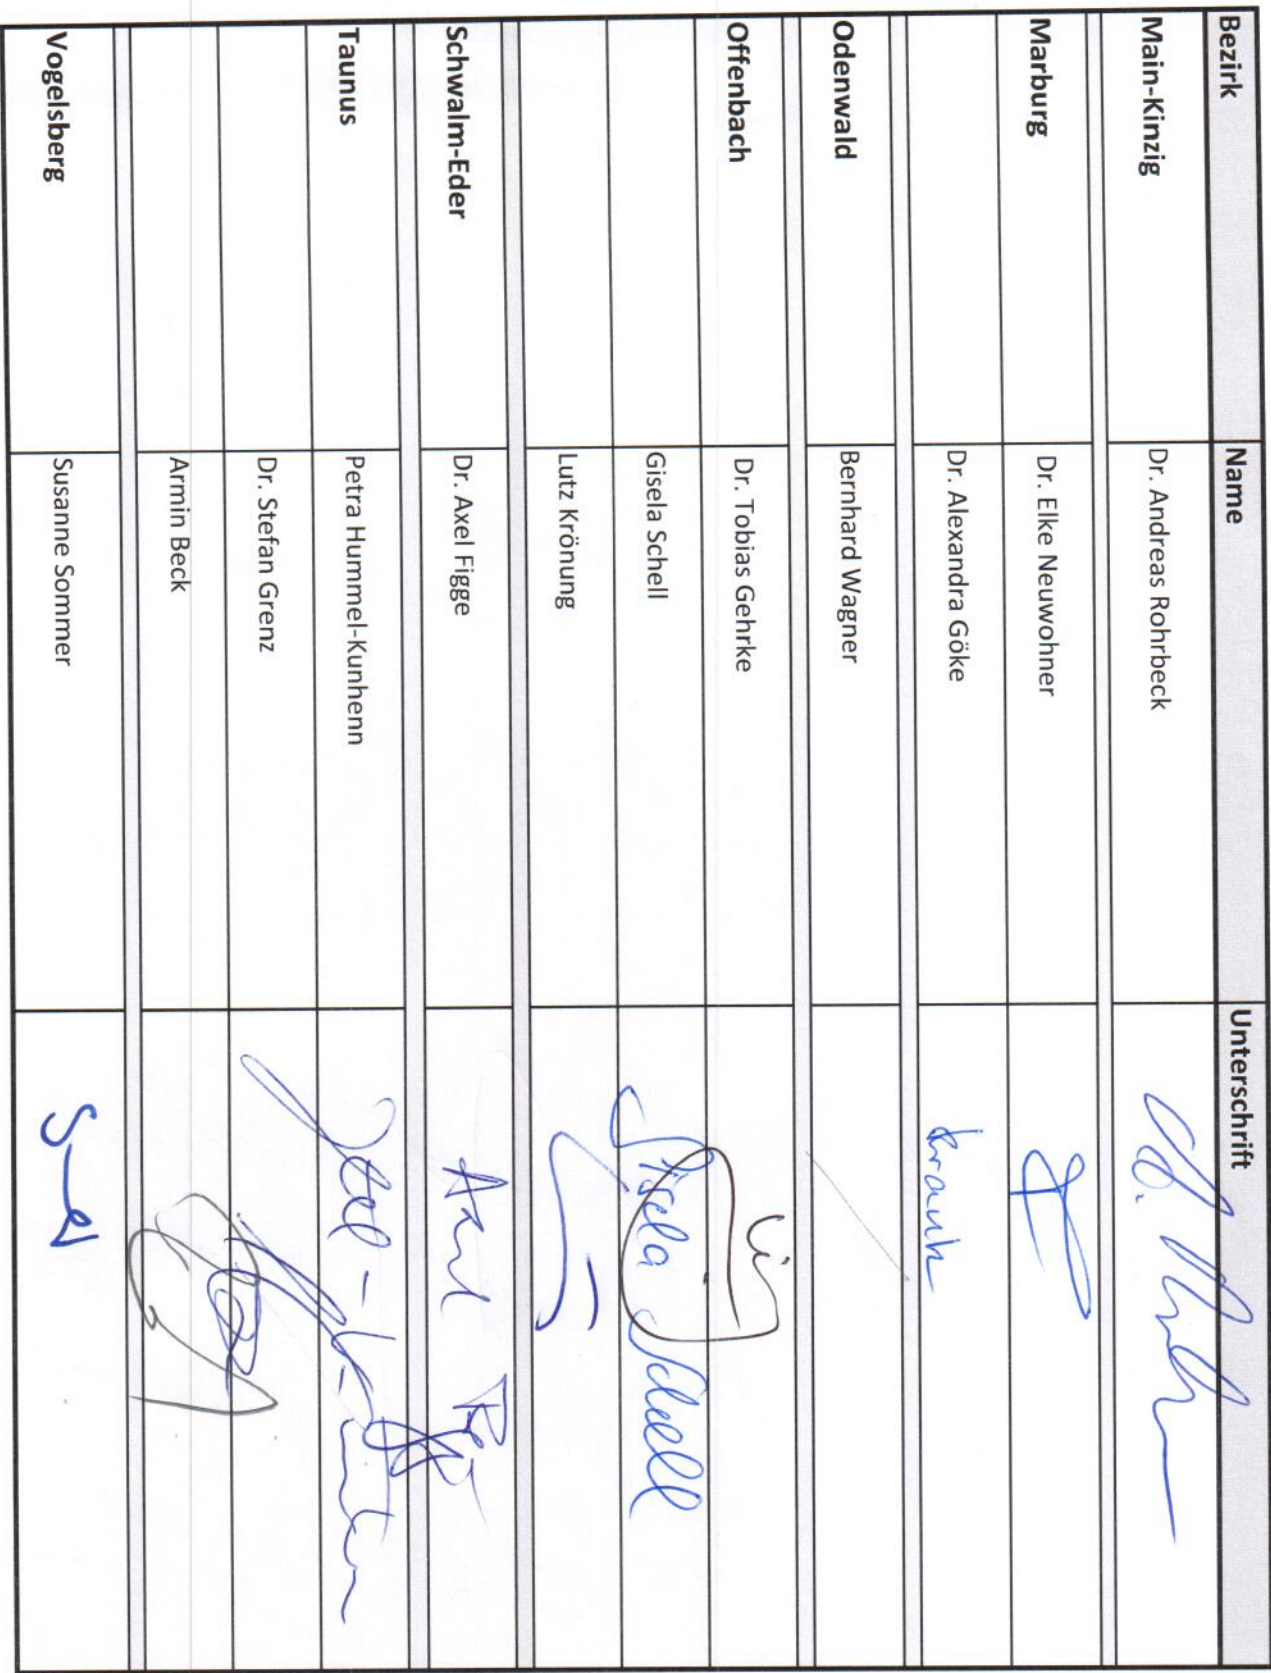 Bezirk Name Unterschrift
Main-Kinzig Dr. Andreas Rohrbeck
Marburg Dr. Elke Neuwohner
Dr. Alexandra Göke krank
Odenwald Bernhard Wagner
Offenbach Dr. Tobias Gehrke
Gisela Schell Gisela Schell
Lutz Krönung
Schwalm-Eder Dr. Axel Figge Axel
Taunus Petra Hummel-Kunhenn
Dr. Stefan Grenz
Armin Beck
Vogelsberg Susanne Sommer